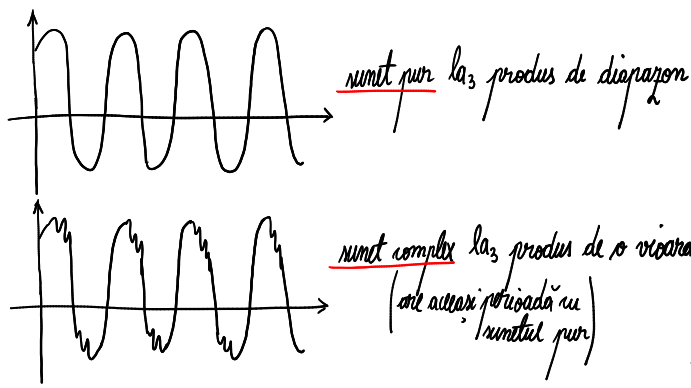 sunet pur la₃ produs de diapazon
sunet complex la₃ produs de o vioara
(are aceeași perioadă cu
sunetul pur)